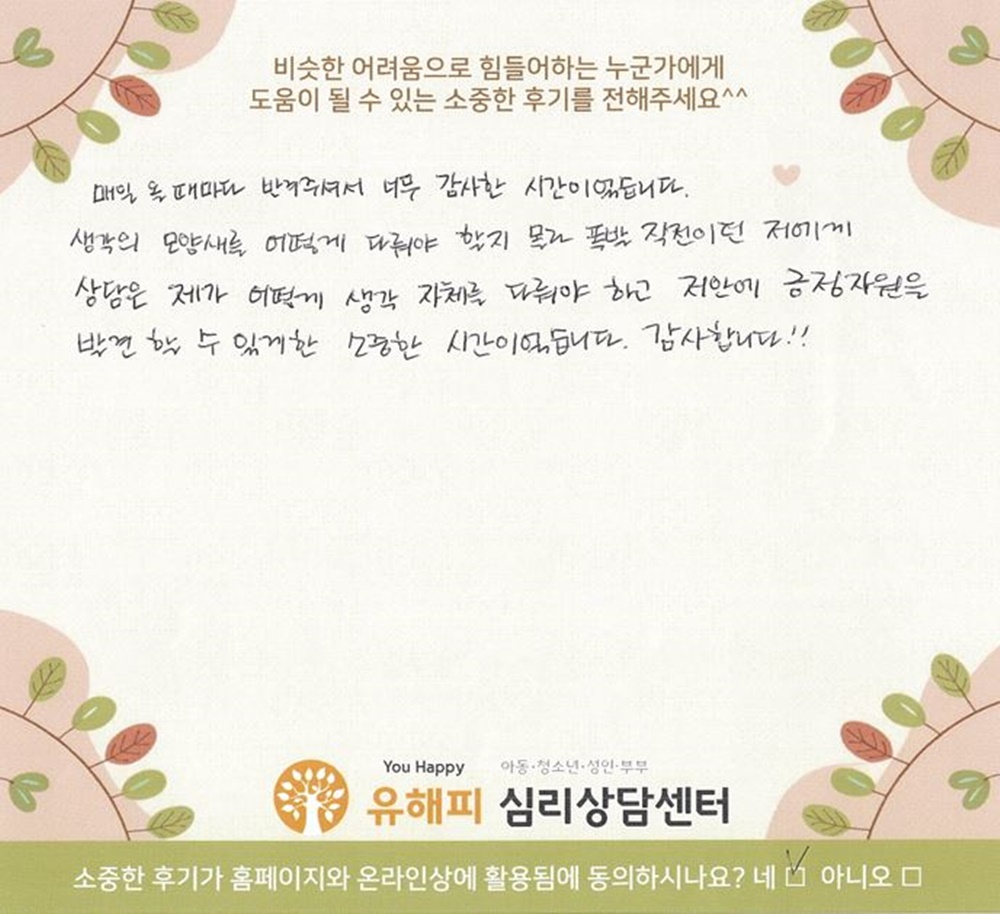 비슷한 어려움으로 힘들어하는 누군가에게
도움이 될 수 있는 소중한 후기를 전해주세요^^
매일 올 때마다 반겨주셔서 너무 감사한 시간이었습니다.
생각의 모양새를 어떻게 다뤄야 할지 몰라 폭발 직전이던 저에게
상담은 제가 어떻게 생각 자체를 다뤄야 하고 저안에 긍정자원을
발견 할 수 있게한 소중한 시간이었습니다. 감사합니다!!
You Happy 아동·청소년·성인·부부
유해피 심리상담센터
소중한 후기가 홈페이지와 온라인상에 활용됨에 동의하시나요? 네 ☑ 아니오 □